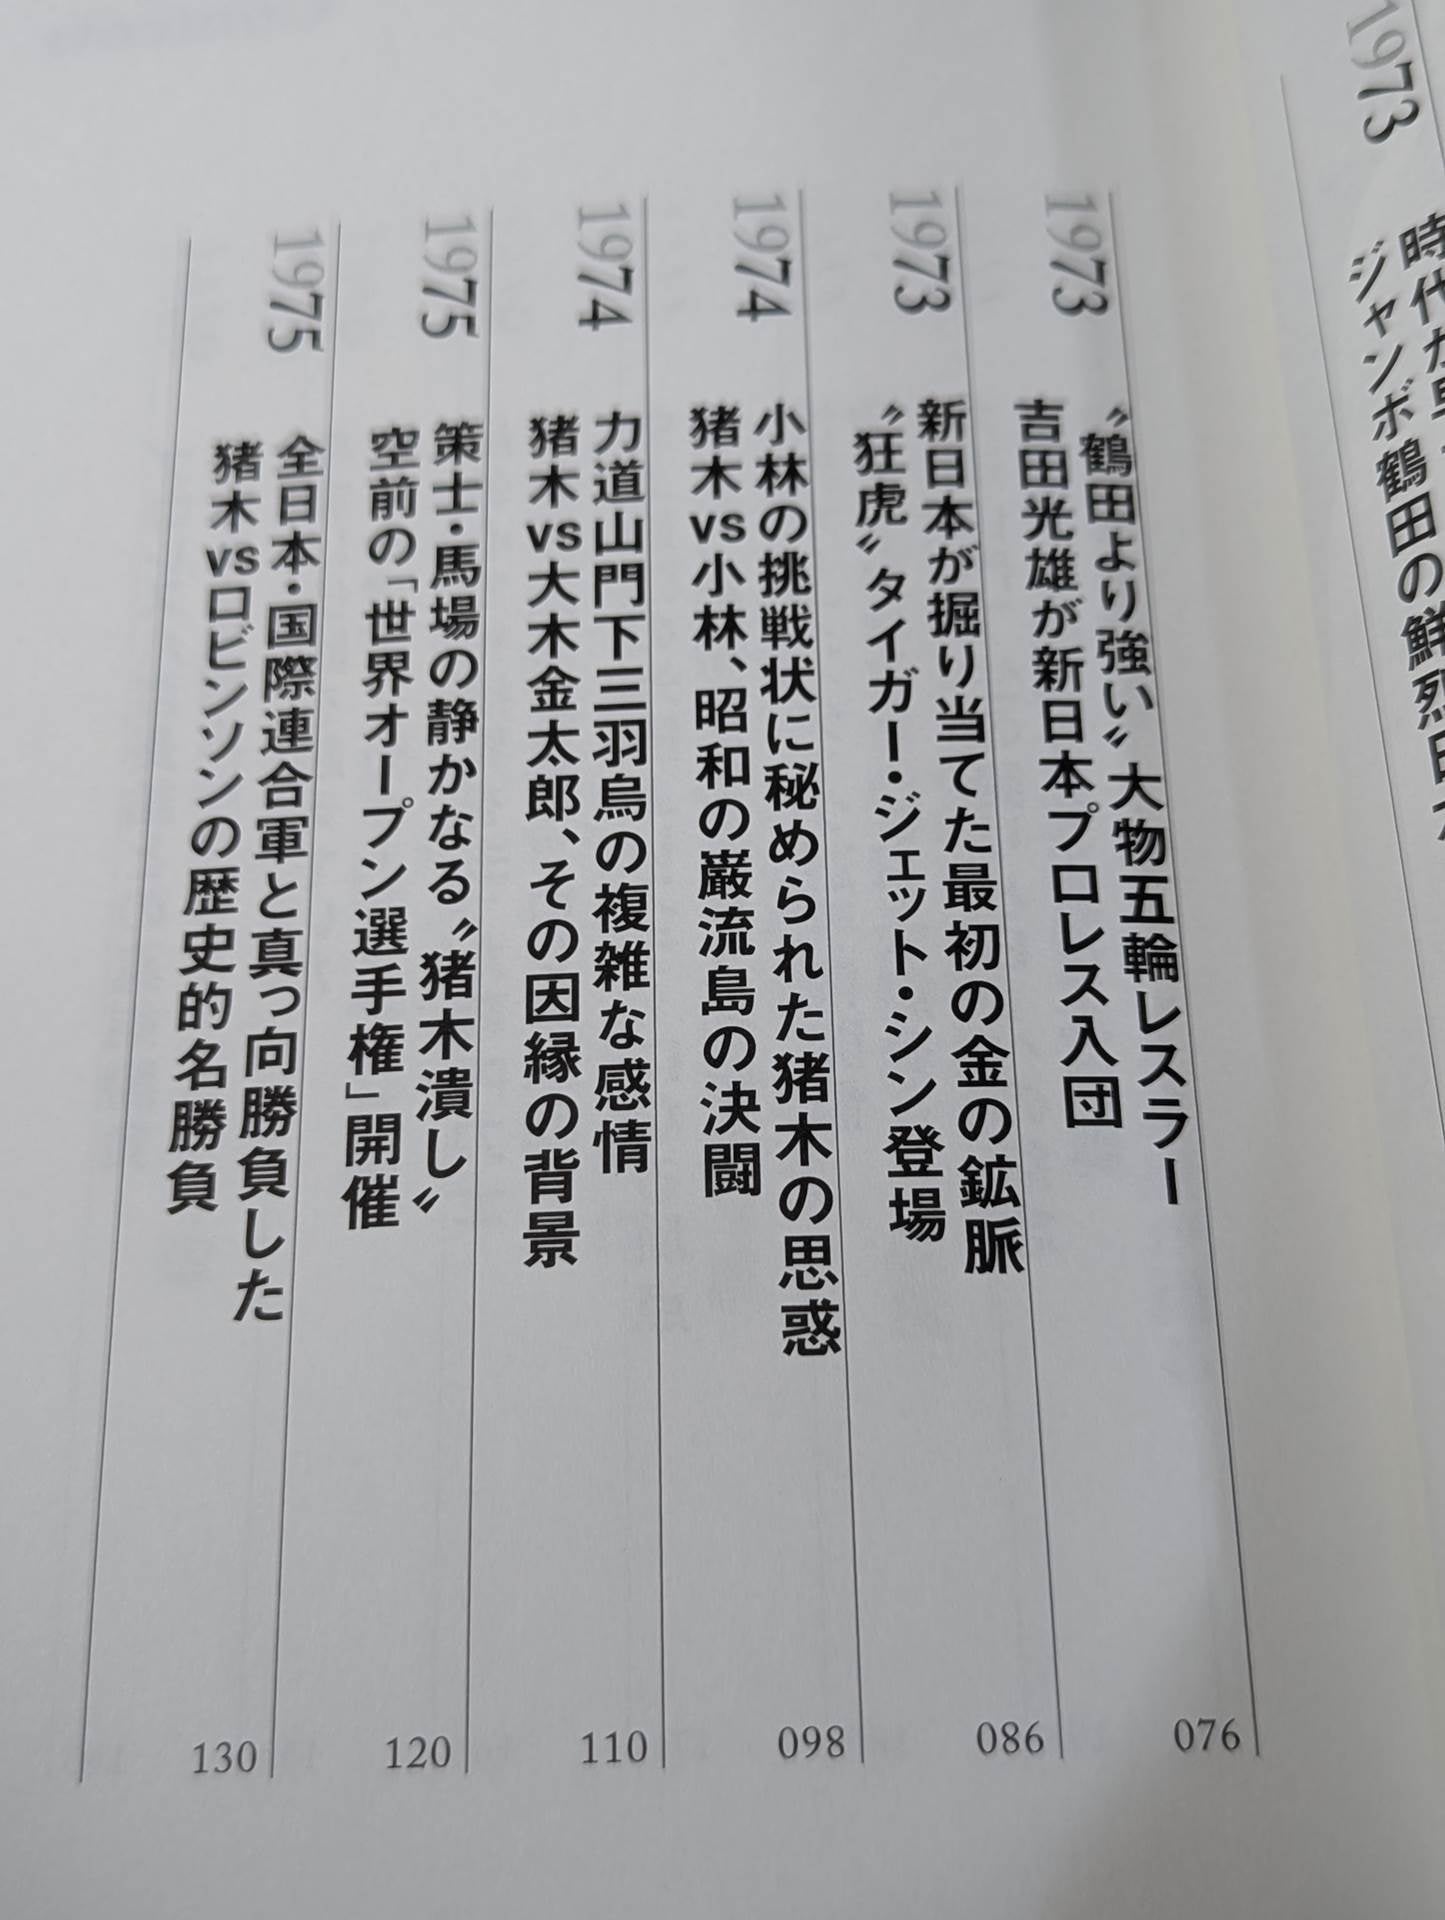 1973
ジャンボ鶴田の鮮烈
1973
〝鶴田より強い〟大物五輪レスラー
吉田光雄が新日本プロレス入団
076
1973
新日本が掘り当てた最初の金の鉱脈
〝狂虎〟タイガー・ジェット・シン登場
086
1974
小林の挑戦状に秘められた猪木の思惑
猪木vs小林、昭和の巌流島の決闘
098
1974
力道山門下三羽烏の複雑な感情
猪木vs大木金太郎、その因縁の背景
110
1975
策士・馬場の静かなる〝猪木潰し〟
空前の「世界オープン選手権」開催
120
1975
全日本・国際連合軍と真っ向勝負した
猪木vsロビンソンの歴史的名勝負
130